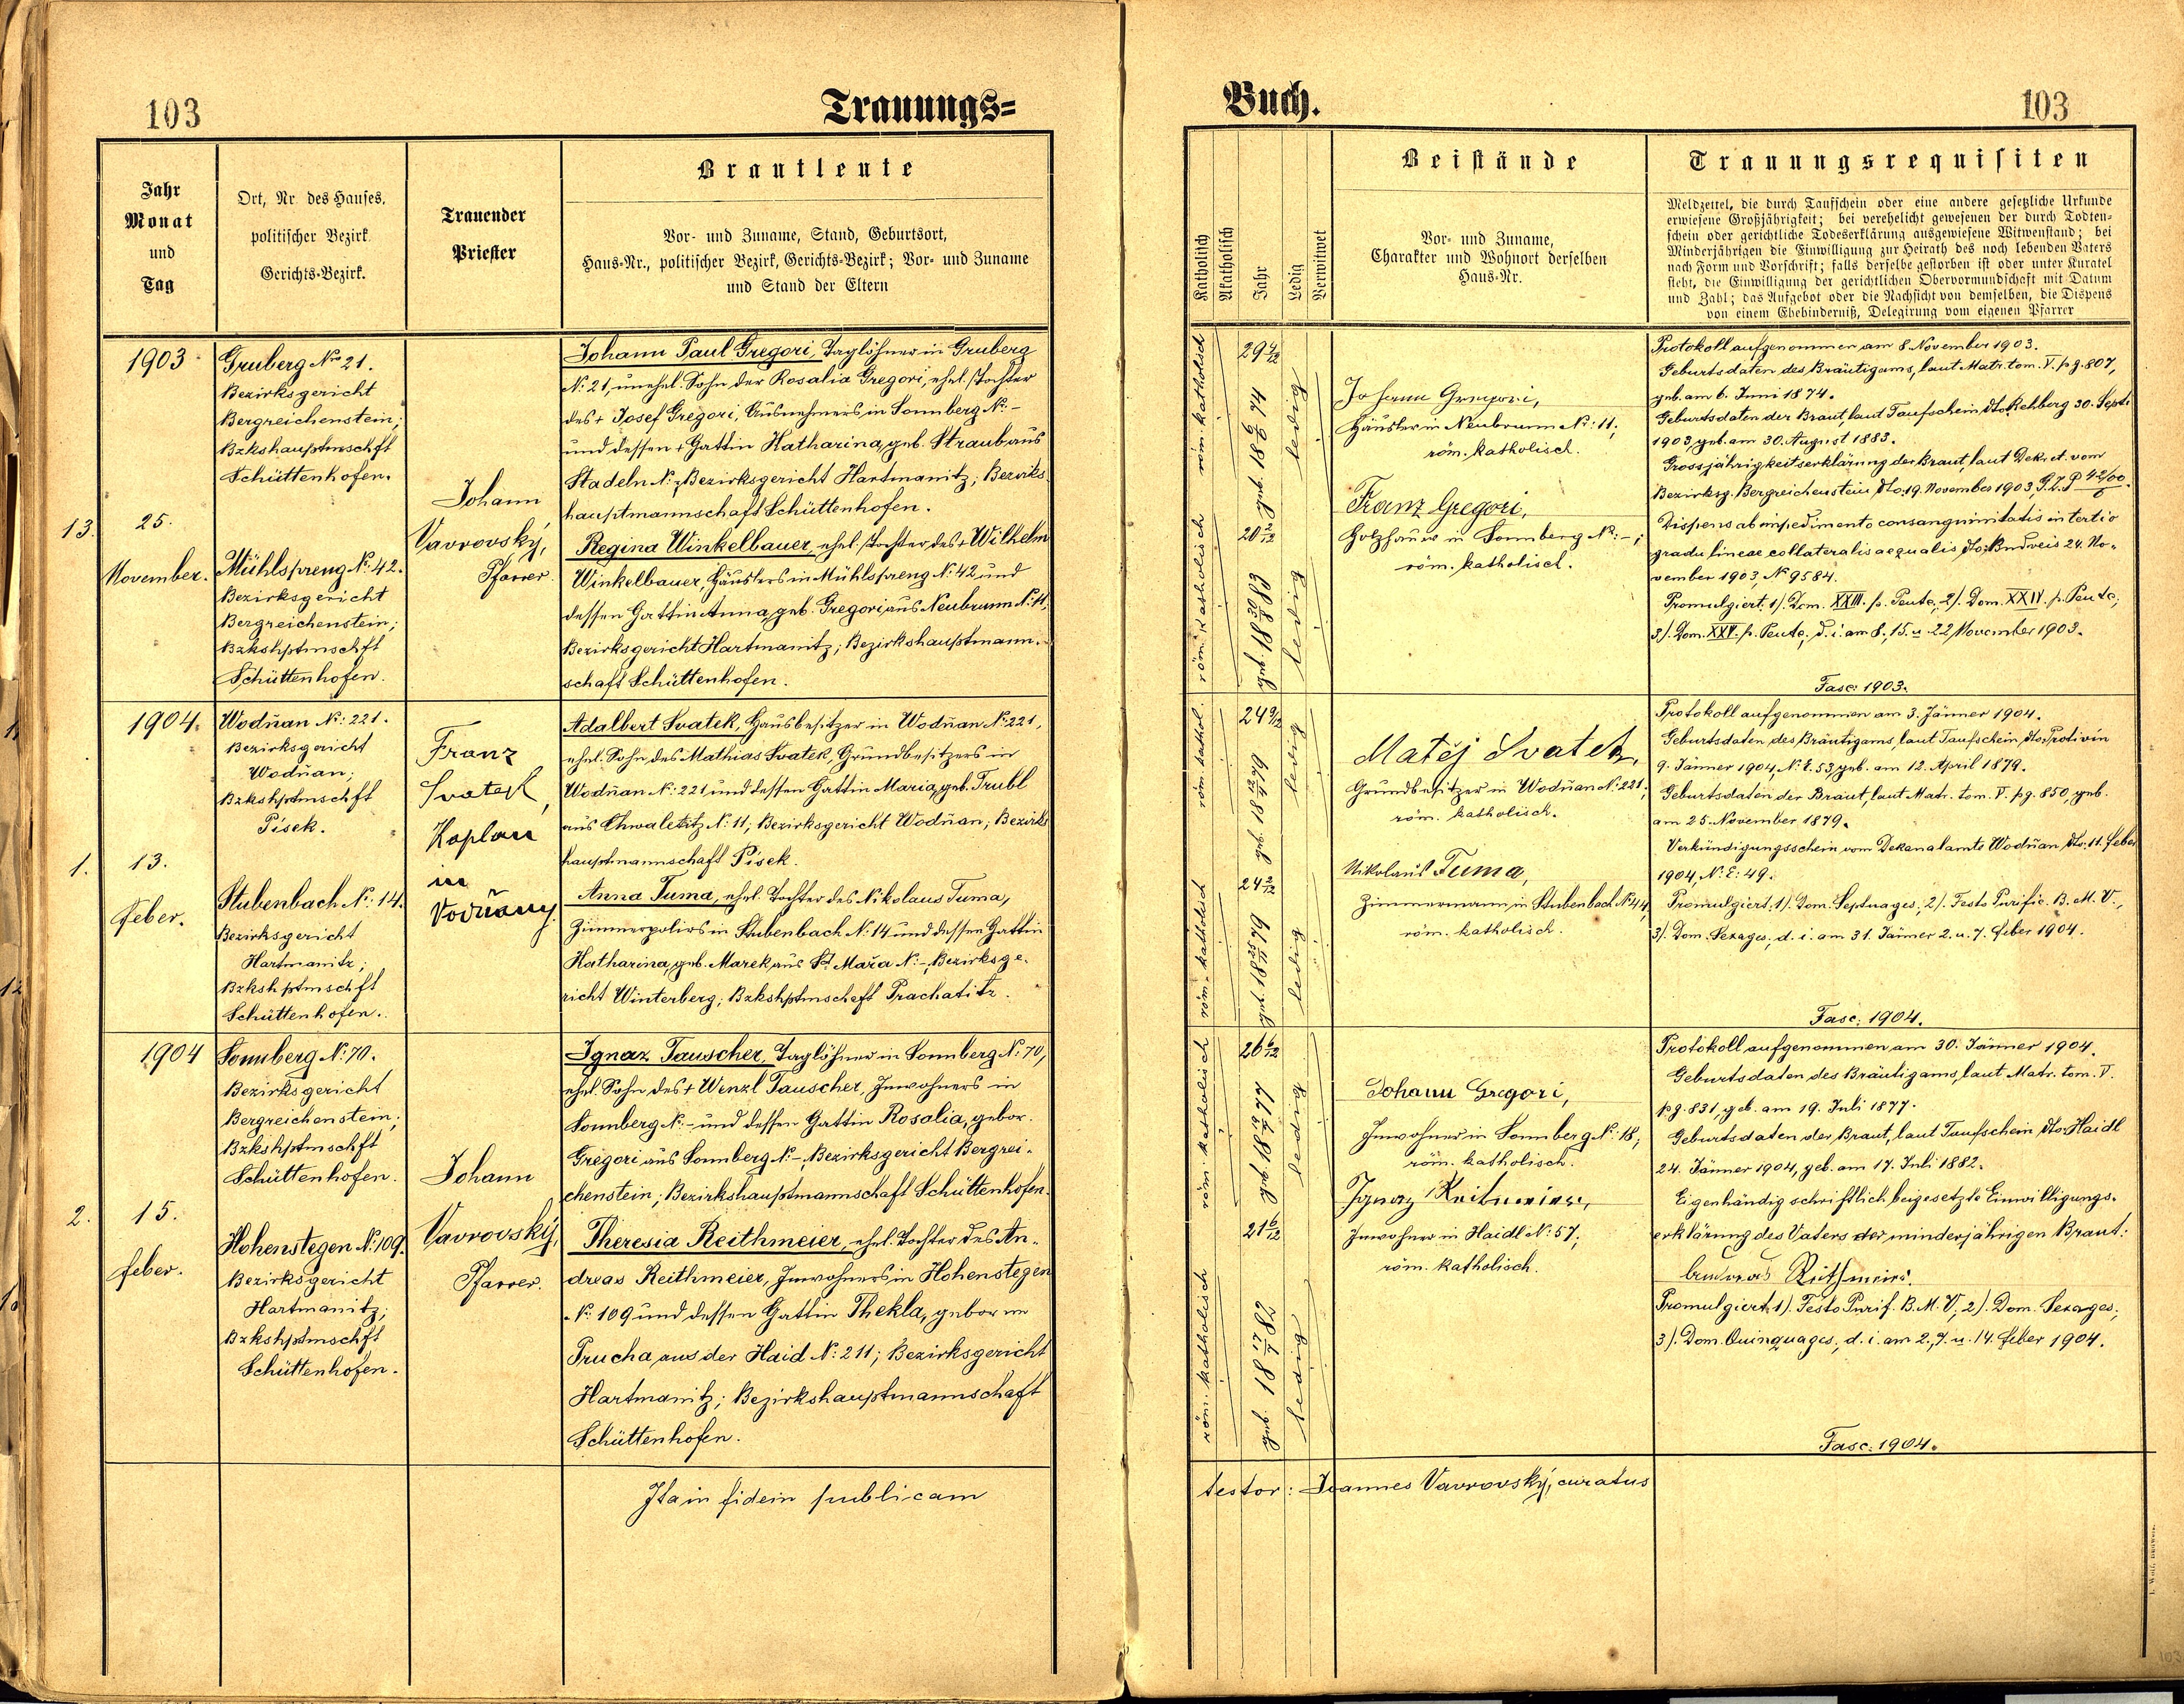 103
Trauungs=
Jahr
Monat
und
Tag
Ort, Nr. des Hauses.
politischer Bezirk
Gerichts-Bezirk.
Trauender
Priester
Brautleute
Vor- und Zuname, Stand, Geburtsort,
Haus-Nr., politischer Bezirk, Gerichts-Bezirk; Vor- und Zuname
und Stand der Eltern
13.
1903
25.
November.
Gruberg Nro 21.
Bezirksgericht
Bergreichenstein;
Bzkshauptmschft
Schüttenhofen.
Mühlspreng No: 42.
Bezirksgericht
Bergreichenstein;
Bzkshptmschft
Schüttenhofen.
Johann
Vavrovský,
Pfarrer.
Johann Paul Gregori, Taglöhner in Gruberg
No: 21, unehel. Sohn der Rosalia Gregori, ehel. Tochter
des + Josef Gregori, Ausnehmers in Sonnberg No: -
und dessen + Gattin Katharina, geb. Straub aus
Stadeln No: -, Bezirksgericht Hartmanitz; Bezirks
hauptmannschaft Schüttenhofen.
Regina Winkelbauer, ehel. Tochter des + Wilhelm
Winkelbauer, Häuslers in Mühlspreng No: 42 und
dessen Gattin Anna, geb. Gregori aus Neubrunn No: 11;
Bezirksgericht Hartmanitz; Bezirkshauptmann-
schaft Schüttenhofen.
1.
1904.
13.
Feber.
Wodňan No: 221.
Bezirksgericht
Wodňan;
Bzkshptmschft
Pisek.
Stubenbach No: 14.
Bezirksgericht
Hartmanitz;
Bzkshptmschft
Schüttenhofen.
Franz
Svatek,
Kaplan
in
Vodňany
Adalbert Svatek, Hausbesitzer in Wodňan No: 221,
ehel. Sohn des Mathias Svatek, Grundbesitzers in
Wodňan No: 221 und dessen Gattin Maria, geb. Trubl
aus Chwaletitz No: 11; Bezirksgericht Wodňan; Bezirks
hauptmannschaft Pisek.
Anna Tuma, ehel. Tochter des Nikolaus Tuma,
Zimmerpoliers in Stubenbach No: 14 und dessen Gattin
Katharina, geb. Marek aus St. Mařa No: -, Bezirksge-
richt Winterberg; Bzkshptmschaft Prachatitz.
2.
1904
15.
Feber.
Sonnberg No: 70.
Bezirksgericht
Bergreichenstein;
Bzkshptmschft
Schüttenhofen.
Hohenstegen No: 109.
Bezirksgericht
Hartmanitz;
Bzkshptmschft
Schüttenhofen.
Johann
Vavrovský,
Pfarrer.
Ignaz Tauscher, Taglöhner in Sonnberg No: 70,
ehel. Sohn des + Wenzl Tauscher, Inwohners in
Sonnberg No: - und dessen Gattin Rosalia, gebor.
Gregori aus Sonnberg No: -, Bezirksgericht Bergrei-
chenstein; Bezirkshauptmannschaft Schüttenhofen.
Theresia Reithmeier, ehel. Tochter des An-
dreas Reithmeier, Inwohners in Hohenstegen
No: 109 und dessen Gattin Thekla, geborene
Prucha, aus der Haid No: 211; Bezirksgericht
Hartmanitz; Bezirkshauptmannschaft
Schüttenhofen.
Ita in fidem publicam
Buch.
103
Katholisch
Akatholisch
Jahr
Ledig
Verwitwet
Beistände
Vor- und Zuname,
Charakter und Wohnort derselben
Haus-Nr.
Trauungsrequisiten
Meldzettel, die durch Taufschein oder eine andere gesetzliche Urkunde
erwiesene Großjährigkeit; bei verehelicht gewesenen der durch Todten-
schein oder gerichtliche Todeserklärung ausgewiesene Witwenstand; bei
Minderjährigen die Einwilligung zur Heirath des noch lebenden Vaters
nach Form und Vorschrift; falls derselbe gestorben ist oder unter Kuratel
steht, die Einwilligung der gerichtlichen Obervormundschaft mit Datum
und Zahl; das Aufgebot oder die Nachsicht von demselben, die Dispens
von einem Ehehinderniß, Delegirung vom eigenen Pfarrer
röm. katholisch
geb. 18 6/6 74
ledig
röm. katholisch
20 2/12
geb. 18 30/8 83
ledig
Johann Gregori,
Häusler in Neubrunn No: 11;
röm. katholisch.
Franz Gregori,
Holzhauer in Sonnberg No: -;
röm. katholisch.
Protokoll aufgenommen am 8. November 1903.
Geburtsdaten des Bräutigams, laut Matr. tom. V. pg. 807,
geb. am 6. Juni 1874.
Geburtsdaten der Braut, laut Taufschein dto Rehberg 30. Septi
1903, geb. am 30. August 1883.
Grossjährigkeitserklärung der Braut, laut Dekret vom
Bezirksg. Bergreichenstein, dto: 19. November 1903, G.Z. P 42/00
6
Dispens ab impedimento consanguinitatis in tertio
gradu lineae collateralis aequalis dto: Budweis 24. No-
vember 1903, No 9584.
Promulgiert: 1). Dom. XXIII. p. Pente., 2). Dom. XXIV. p. Pente.,
3). Dom. XXV. p. Pente., d. i. am 8., 15. u. 22 November 1903.
Fasc: 1903.
röm. kathol.
24 9/12
geb. 18 12/4 79
ledig
röm. katholisch
24 2/12
geb. 18 25/11 79
ledig
Matěj Svatek,
Grundbesitzer in Wodňan No: 221;
röm. katholisch.
Nikolaus Tuma,
Zimmermann in Stubenbach No: 14,
röm. katholisch.
Protokoll aufgenommen am 3. Jänner 1904.
Geburtsdaten des Bräutigams, laut Taufschein, dto: Protivin
9. Jänner 1904, No: E. 53, geb. am 12. April 1879.
Geburtsdaten der Braut, laut Matr. tom. V. pg. 850, geb.
am 25. November 1879.
Verkündigungsschein vom Dekanalamte Wodňan, dto: 11. Feber
1904, No: E: 49.
Promulgiert: 1). Dom. Septuages., 2). Festo Purific. B. M. V.,
3). Dom. Sexages., d. i. am 31. Jänner 2. u. 7. Feber 1904.
Fasc: 1904.
röm. katholisch
26 6/12
geb. 18 19/7 77
ledig
röm. katholisch
21 6/12
geb. 18 17/7 82
ledig
Johann Gregori,
Inwohner in Sonnberg No: 18;
röm. katholisch.
Ignaz
Inwohner in Haidl No: 57;
röm. katholisch.
Protokoll aufgenommen am 30. Jänner 1904.
Geburtsdaten des Bräutigams, laut Matr. tom. V.
pg. 831, geb. am 19. Juli 1877.
Geburtsdaten der Braut, laut Taufschein dto: Haidl
24. Jänner 1904, geb. am 17. Juli 1882.
Eigenhändig schriftlich beigesetzte Einwilligungs-
erklärung des Vaters der minderjährigen Braut:
Promulgiert: 1). Festo Purif. B. M. V., 2). Dom. Sexages.,
3). Dom. Quinquages., d. i. am 2., 7. u. 14. Feber 1904.
Fasc: 1904.
testor: Joannes Vavrovský, curatus